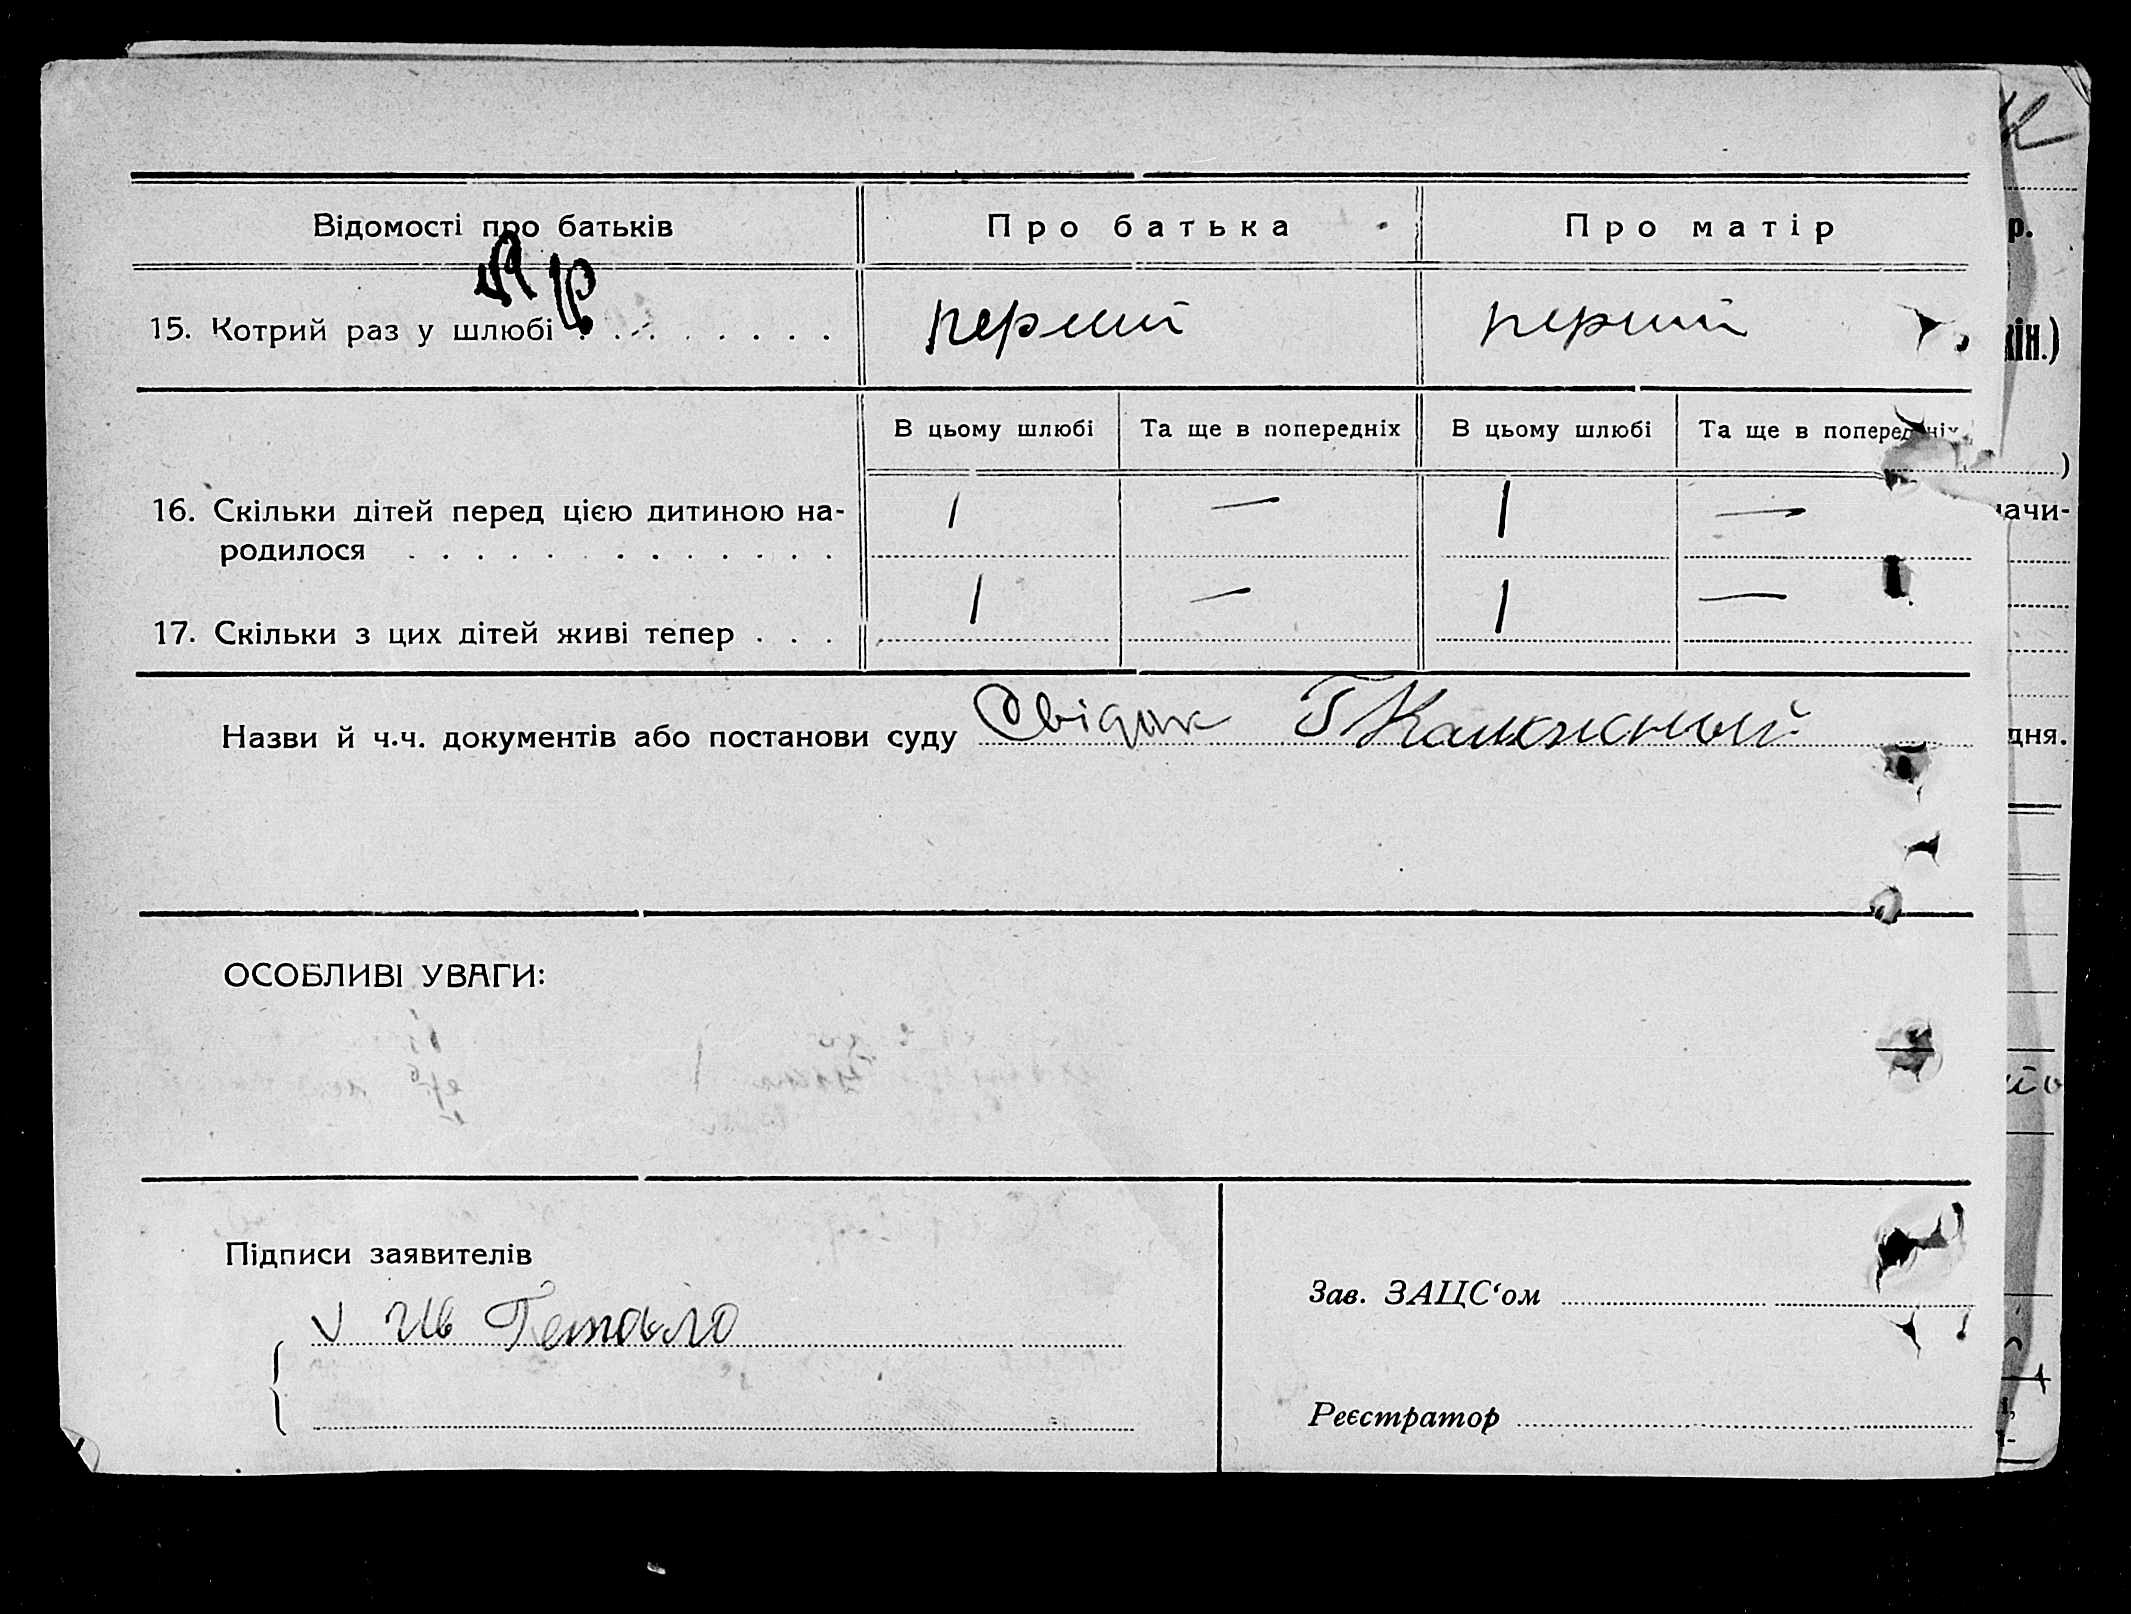 Відомості про батьків Про батька Про матір
15. Котрий раз у шлюбі . . . . . . . . перший перший
В цьому шлюбі Та ще в попередніх В цьому шлюбі Та ще в попередніх
16. Скільки дітей перед цією дитиною на- 1 — 1 —
родилося . . . . . . . . . . . . .
17. Скільки з цих дітей живі тепер . . . 1 — 1 —
Назви й ч.ч. документів або постанови суду Свідок
ОСОБЛИВІ УВАГИ:
Підписи заявителів
Зав. ЗАЦС‘ом
Реєстратор
р.
)
ачи-
дня.